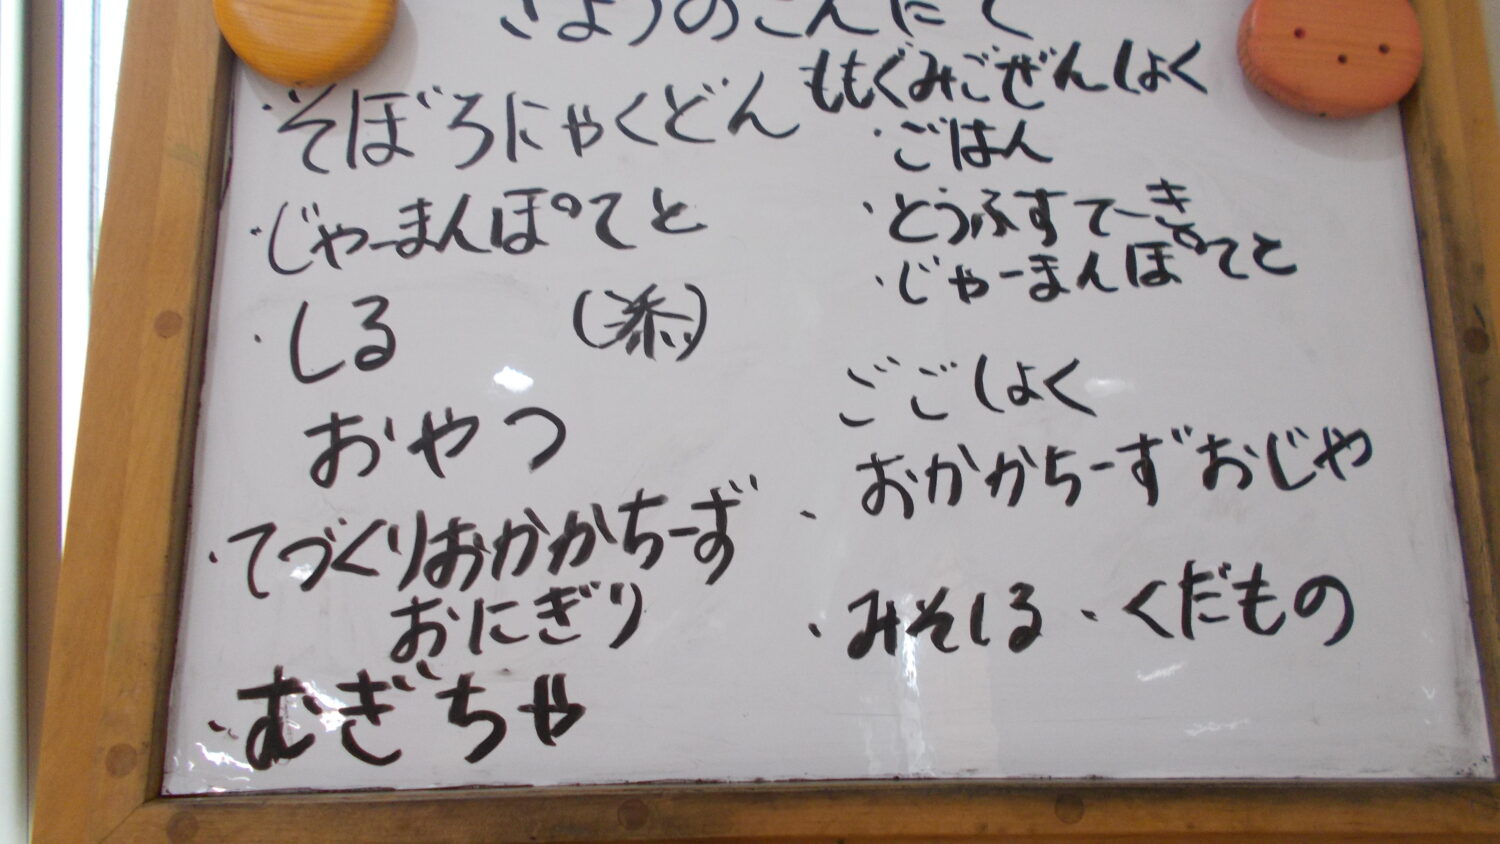 きょうのこんだて
・そぼろにゃくどん
・じゃーまんぽてと
・しる
おやつ
・てづくりおかかちーず
おにぎり
・むぎちゃ
ももぐみごぜんしょく
・ごはん
・とうふすてーき
・じゃーまんぽてと
ごごしょく
・おかかちーずおじや
・みそしる・くだもの